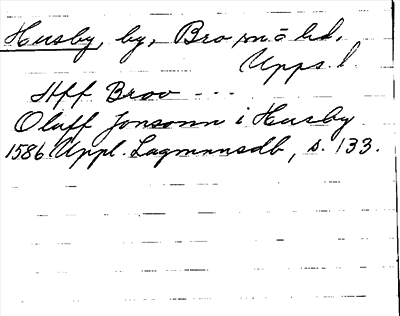 Husby, by, Bro sn o hd,
Upps. l.
Aff Broo ---
Oluff Jonsonn i Husby
1586 Uppl. Lagmansdb, s. 133.